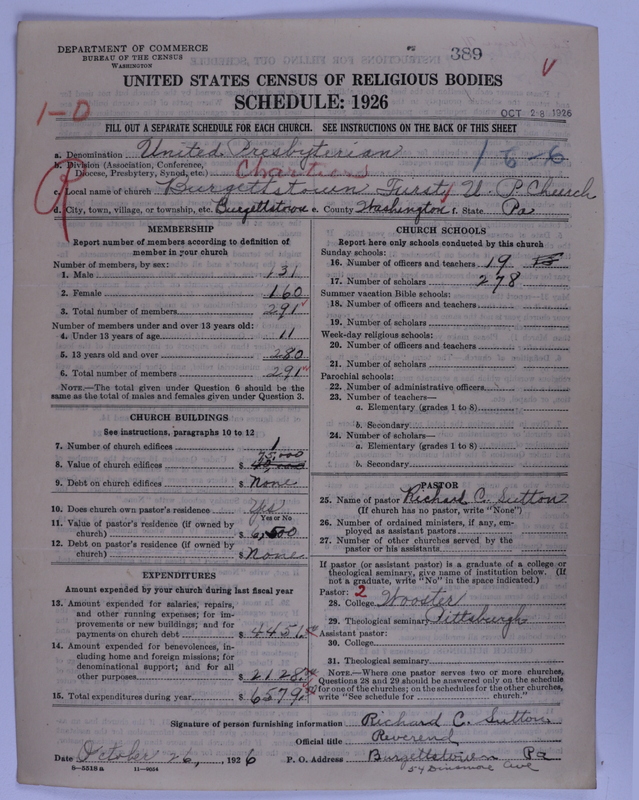 DEPARTMENT OF COMMERCE
BUREAU OF THE CENSUS
WASHINGTON
389
UNITED STATES CENSUS OF RELIGIOUS BODIES
SCHEDULE: 1926
1-0
OCT 28 1926
FILL OUT A SEPARATE SCHEDULE FOR EACH CHURCH. SEE INSTRUCTIONS ON THE BACK OF THIS SHEET
a. Denomination United Presbyterian
b. Division (Association, Conference, Diocese, Presbytery, Synod, etc.) Chartiers
1626
c. Local name of church Burgettstown First U. P. Church
d. City, town, village, or township, etc. Burgettstown e. County Washington f. State Pa
MEMBERSHIP
Report number of members according to definition of
member in your church
Number of members, by sex:
1. Male 131
2. Female 160
3. Total number of members 291
Number of members under and over 13 years old:
4. Under 13 years of age 11
5. 13 years old and over 280
6. Total number of members 291
NOTE.—The total given under Question 6 should be
same as the total of males and females given under Question 3.
CHURCH BUILDINGS
See instructions, paragraphs 10 to 12
7. Number of church edifices 1
8. Value of church edifices $ 75,000
9. Debt on church edifices $ None
10. Does church own pastor's residence Yes
Yes or No
11. Value of pastor's residence (if owned by
church) $ 6,500
12. Debt on pastor's residence (if owned by
church) $ None
EXPENDITURES
Amount expended by your church during last fiscal year
13. Amount expended for salaries, repairs,
and other running expenses; for im-
provements or new buildings; and for
payments on church debt $ 4451.
14. Amount expended for benevolences, in-
cluding home and foreign missions; for
denominational support; and for all
other purposes $ 2128.
15. Total expenditures during year $ 6579.
CHURCH SCHOOLS
Report here only schools conducted by this church
Sunday schools:
16. Number of officers and teachers 19
17. Number of scholars 278
Summer vacation Bible schools:
18. Number of officers and teachers
19. Number of scholars
Week-day religious schools:
20. Number of officers and teachers
21. Number of scholars
Parochial schools:
22. Number of administrative officers
23. Number of teachers—
a. Elementary (grades 1 to 8)
b. Secondary
24. Number of scholars—
a. Elementary (grades 1 to 8)
b. Secondary
PASTOR
25. Name of pastor Richard C. Sutton
(If church has no pastor, write "None")
26. Number of ordained ministers, if any, em-
ployed as assistant pastors
27. Number of other churches served by the
pastor or his assistants
If pastor (or assistant pastor) is a graduate of a college or
theological seminary, give name of institution below. (If
not a graduate, write "No" in the space indicated.)
Pastor: 2
28. College Wooster
29. Theological seminary Pittsburgh
Assistant pastor:
30. College
31. Theological seminary
NOTE.—Where one pastor serves two or more churches,
Questions 28 and 29 should be answered only on the schedule
for one of the churches; on the schedules for the other churches,
write "See schedule for church."
Signature of person furnishing information Richard C. Sutton
Official title Reverend
Date October 26, 1926 P. O. Address Burgettstown Pa
54 Dinsmore Ave
8—5518 a 11—9084